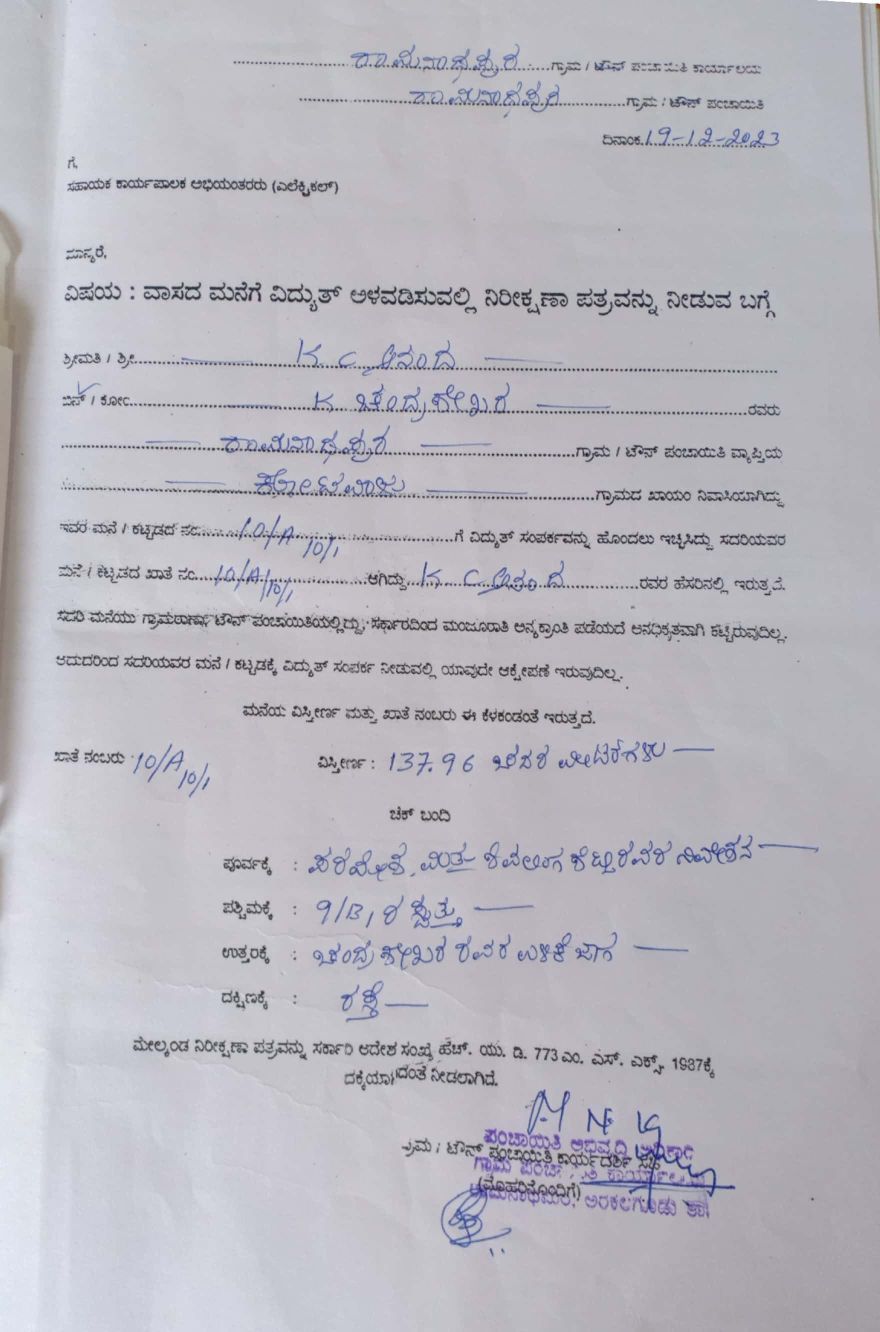 ರಾಮನಾಥಪುರ ಗ್ರಾಮ / ಟೌನ್ ಪಂಚಾಯಿತಿ ಕಾರ್ಯಾಲಯ
ರಾಮನಾಥಪುರ ಗ್ರಾಮ / ಟೌನ್ ಪಂಚಾಯಿತಿ
ದಿನಾಂಕ 19-12-2023
ಗೆ,
ಸಹಾಯಕ ಕಾರ್ಯಪಾಲಕ ಅಭಿಯಂತರರು (ಎಲೆಕ್ಟ್ರಿಕಲ್)
ಮಾನ್ಯರೆ,
ವಿಷಯ : ವಾಸದ ಮನೆಗೆ ವಿದ್ಯುತ್ ಅಳವಡಿಸುವಲ್ಲಿ ನಿರೀಕ್ಷಣಾ ಪತ್ರವನ್ನು ನೀಡುವ ಬಗ್ಗೆ
ಶ್ರೀಮತಿ / ಶ್ರೀ K C ಆನಂದ
ಬಿನ್ / ಕೋಂ K ಚಂದ್ರಶೇಖರ ರವರು
ರಾಮನಾಥಪುರ ಗ್ರಾಮ / ಟೌನ್ ಪಂಚಾಯಿತಿ ವ್ಯಾಪ್ತಿಯ
ಗ್ರಾಮದ ಖಾಯಂ ನಿವಾಸಿಯಾಗಿದ್ದು
ಇವರ ಮನೆ / ಕಟ್ಟಡದ ನಂ. 10/A 10/1 ಗೆ ವಿದ್ಯುತ್ ಸಂಪರ್ಕವನ್ನು ಹೊಂದಲು ಇಚ್ಛಿಸಿದ್ದು ಸದರಿಯವರ
ಮನೆ / ಕಟ್ಟಡದ ಖಾತೆ ನಂ. 10/A/10/1 ಆಗಿದ್ದು K C ಆನಂದ ರವರ ಹೆಸರಿನಲ್ಲಿ ಇರುತ್ತದೆ.
ಸದರಿ ಮನೆಯು ಗ್ರಾಮಠಾಣಾ, ಟೌನ್ ಪಂಚಾಯಿತಿಯಲ್ಲಿದ್ದು, ಸರ್ಕಾರದಿಂದ ಮಂಜೂರಾತಿ ಅನ್ಯಕ್ರಾಂತಿ ಪಡೆಯದೆ ಅನಧಿಕೃತವಾಗಿ ಕಟ್ಟಿರುವುದಿಲ್ಲ.
ಆದುದರಿಂದ ಸದರಿಯವರ ಮನೆ / ಕಟ್ಟಡಕ್ಕೆ ವಿದ್ಯುತ್ ಸಂಪರ್ಕ ನೀಡುವಲ್ಲಿ ಯಾವುದೇ ಆಕ್ಷೇಪಣೆ ಇರುವುದಿಲ್ಲ.
ಮನೆಯ ವಿಸ್ತೀರ್ಣ ಮತ್ತು ಖಾತೆ ನಂಬರು ಈ ಕೆಳಕಂಡಂತೆ ಇರುತ್ತದೆ.
ಖಾತೆ ನಂಬರು 10/A/10/1 ವಿಸ್ತೀರ್ಣ : 137.96 ಚದರ ಮೀಟರ್‌ಗಳು
ಚಕ್ ಬಂದಿ
ಪೂರ್ವಕ್ಕೆ : ಪರಮೇಶ, ಮತ್ತು ಶಿವಲಿಂಗ ಶೆಟ್ಟಿ ರವರ ನಿವೇಶನ
ಪಶ್ಚಿಮಕ್ಕೆ : 9/B, ರ ಸ್ವತ್ತು
ಉತ್ತರಕ್ಕೆ : ಚಂದ್ರಶೇಖರ ರವರ ಉಳಿಕೆ ಜಾಗ
ದಕ್ಷಿಣಕ್ಕೆ : ರಸ್ತೆ
ಮೇಲ್ಕಂಡ ನಿರೀಕ್ಷಣಾ ಪತ್ರವನ್ನು ಸರ್ಕಾರಿ ಆದೇಶ ಸಂಖ್ಯೆ ಹೆಚ್. ಯು. ಡಿ. 773 ಎಂ. ಎಸ್. ಎಕ್ಸ್. 1987ಕ್ಕೆ
ನೀಡಲಾಗಿದೆ.
ಗ್ರಾಮ / ಟೌನ್ ಪಂಚಾಯಿತಿ ಕಾರ್ಯದರ್ಶಿ ಸಹಿ
(ಮೊಹರಿನೊಂದಿಗೆ)
ಪಂಚಾಯಿತಿ ಅಭಿವೃದ್ಧಿ ಅಧಿಕಾರಿ
ಗ್ರಾಮ ಪಂಚಾಯಿತಿ ಕಾರ್ಯಾಲಯ
ರಾಮನಾಥಪುರ, ಅರಕಲಗೂಡು ತಾ||